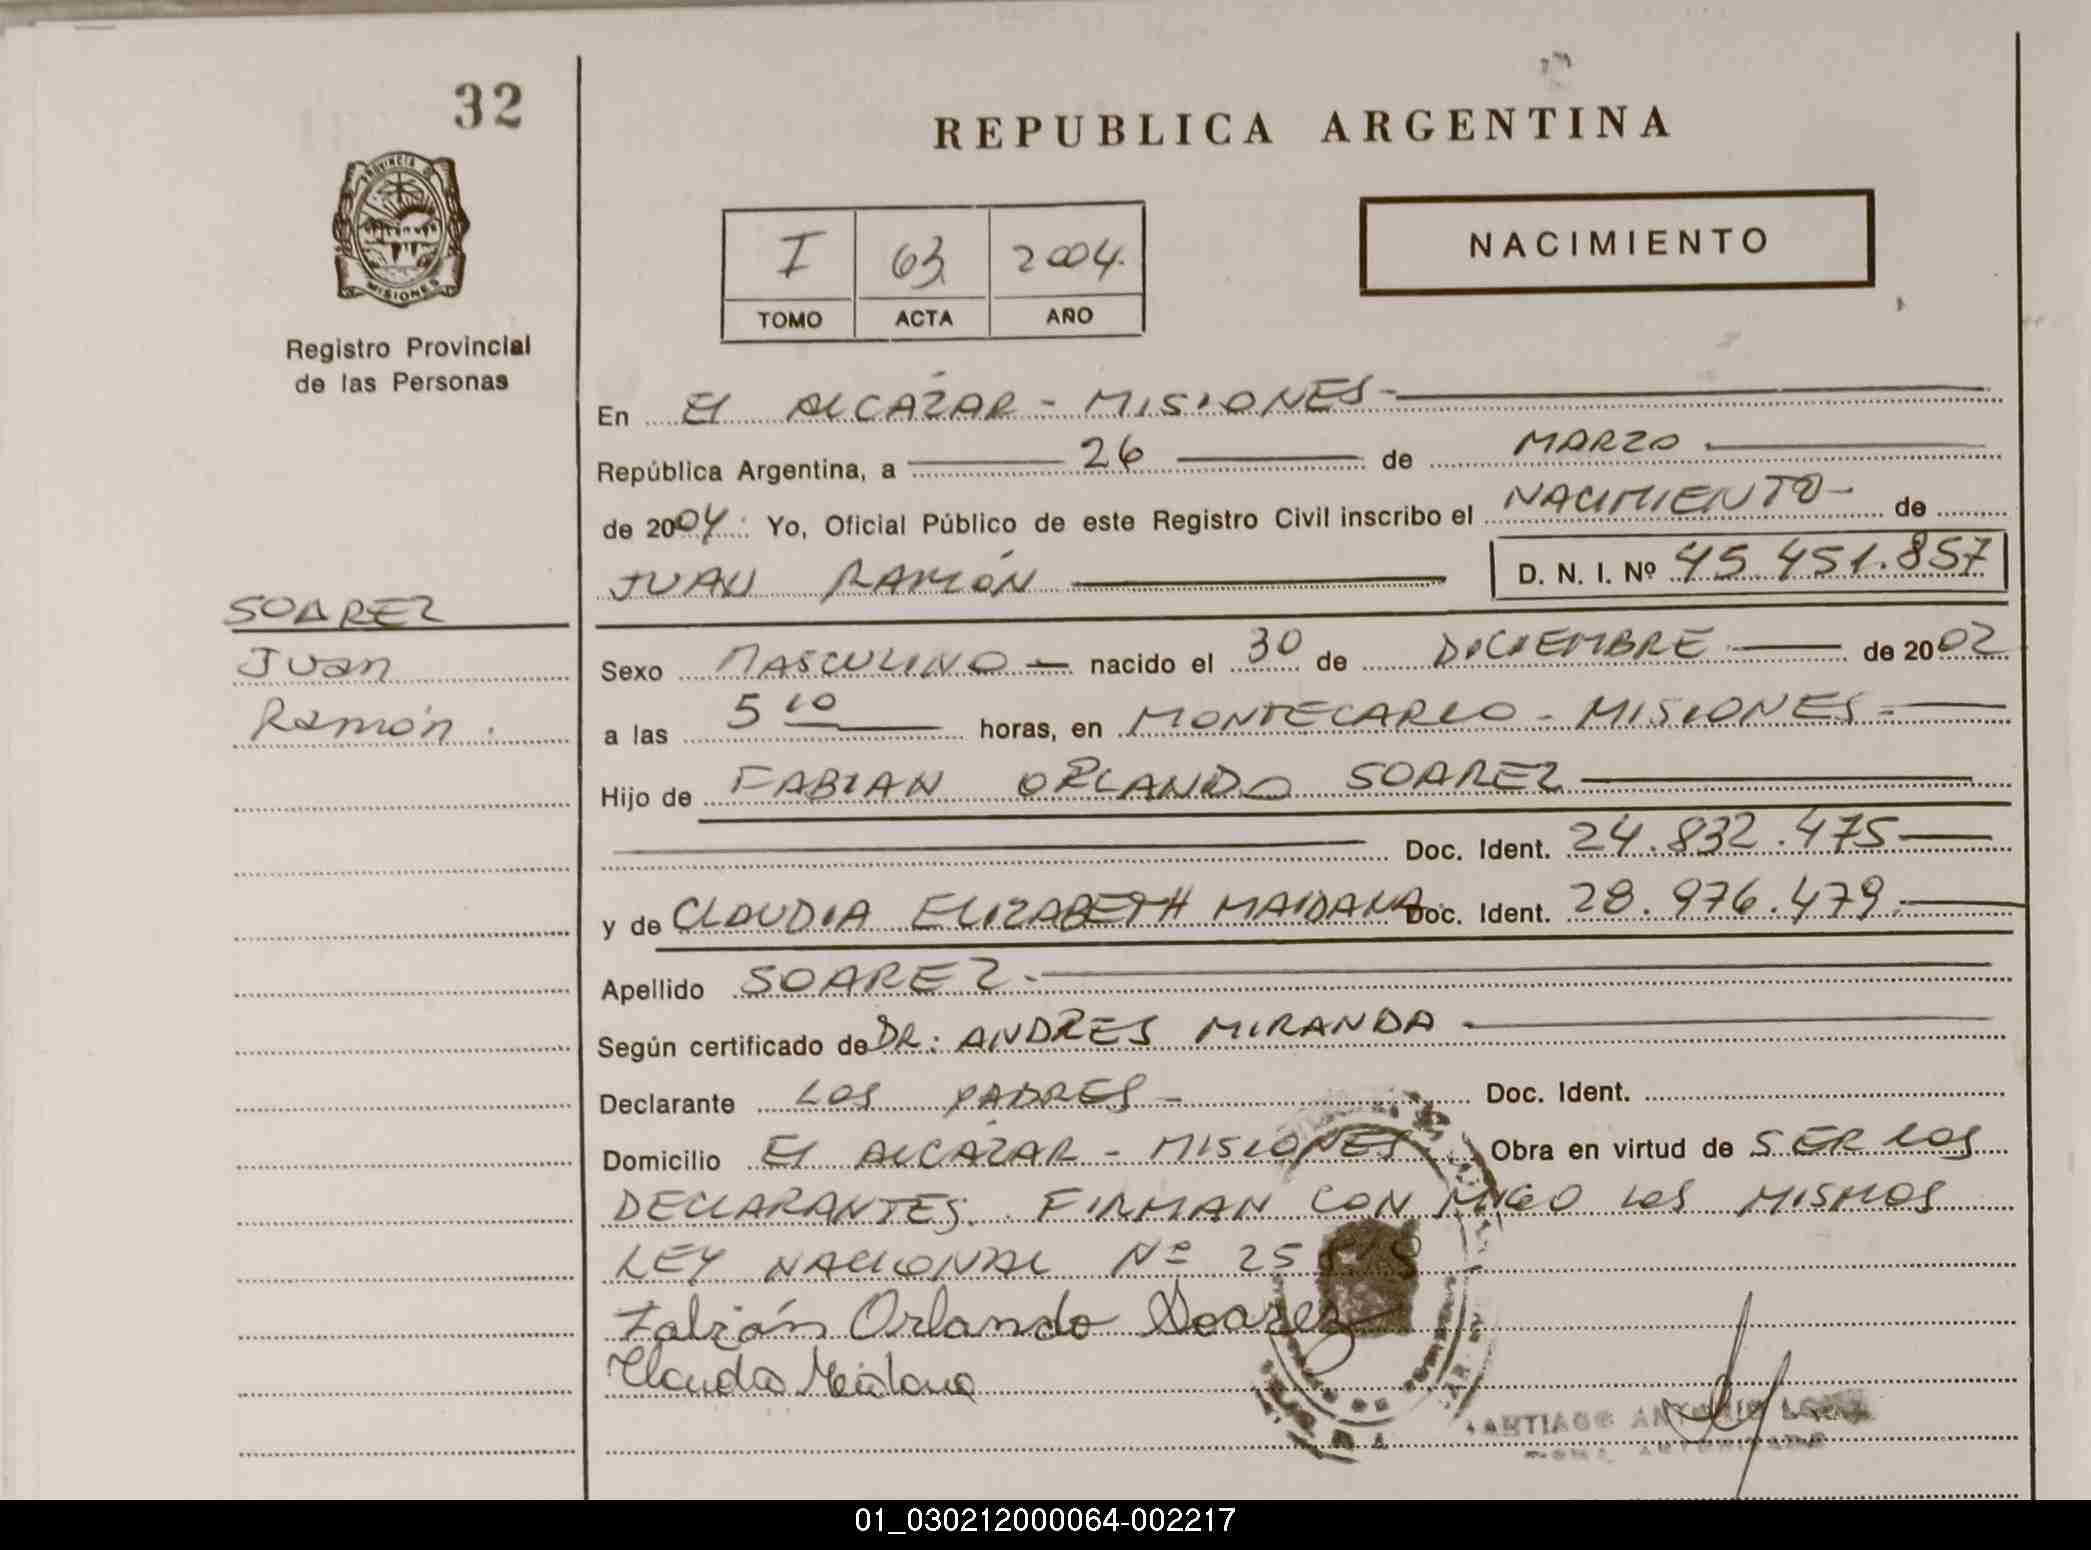 32
REPUBLICA ARGENTINA
PROVINCIA DE
MISIONES
I 63 2004.
TOMO ACTA AÑO
NACIMIENTO
Registro Provincial
de las Personas
En El ALCÁZAR - MISIONES -
República Argentina, a 26 de MARZO
de 2004. Yo, Oficial Público de este Registro Civil inscribo el NACIMIENTO - de
JUAN RAMÓN D. N. I. Nº 45.451.857
SOAREZ
Juan
Ramón.
Sexo MASCULINO - nacido el 30 de DICIEMBRE de 2002
a las 5 10 horas, en MONTECARLO - MISIONES -
Hijo de FABIAN ORLANDO SOAREZ
Doc. Ident. 24.832.475
y de CLAUDIA ELIZABETH MAIDANA Doc. Ident. 28.976.479.
Apellido SOAREZ.
Según certificado de DR: ANDRES MIRANDA
Declarante LOS PADRES - Doc. Ident.
Domicilio El ALCÁZAR - MISIONES Obra en virtud de SER LOS
DECLARANTES. FIRMAN CON MIGO LOS MISMOS
LEY NACIONAL Nº 25
Fabián Orlando Soarez
Claudia Maidana
SANTIAGO ANTONIO
01_030212000064-002217